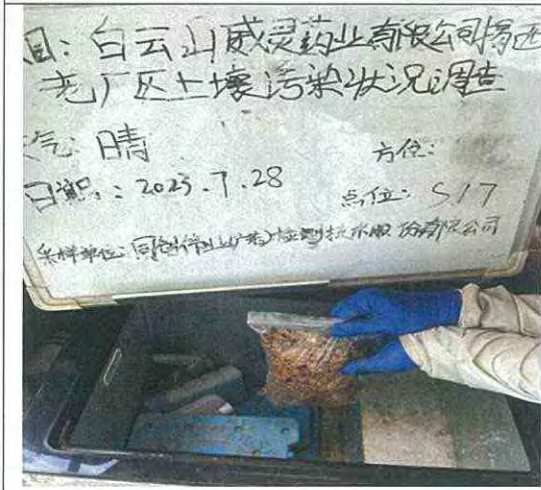 目：白云山威灵药业有限公司揭西
老厂区土壤污染状况调查
天气：晴
方位：
日期：2023.7.28
点位：S17
采样单位：同创伟业(广东)检测技术股份有限公司